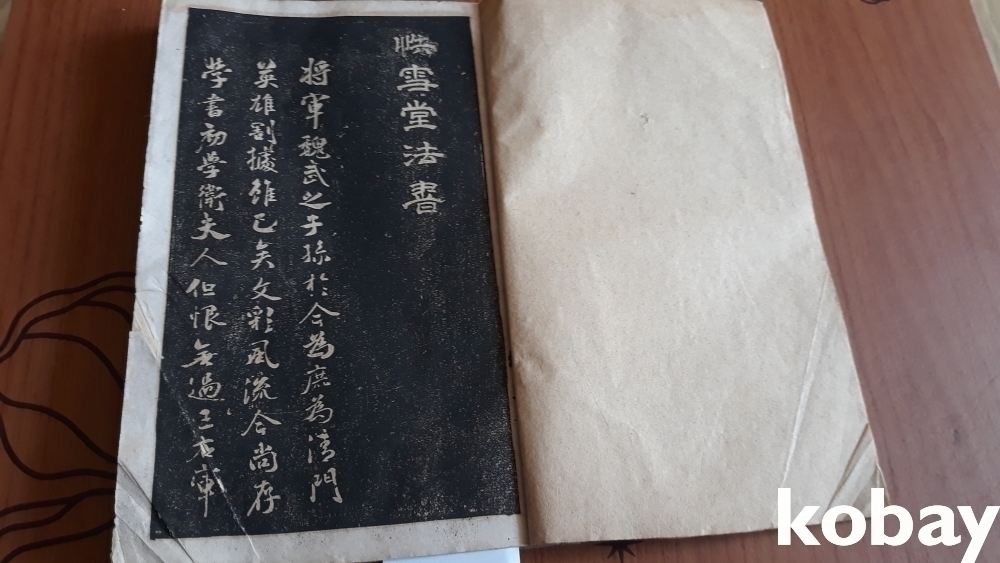 快雪堂法書
將軍魏武之子孫於今為庶為清門
英雄割據雖已矣文彩風流今尚存
學書初學衛夫人但恨無過王右軍
kobay